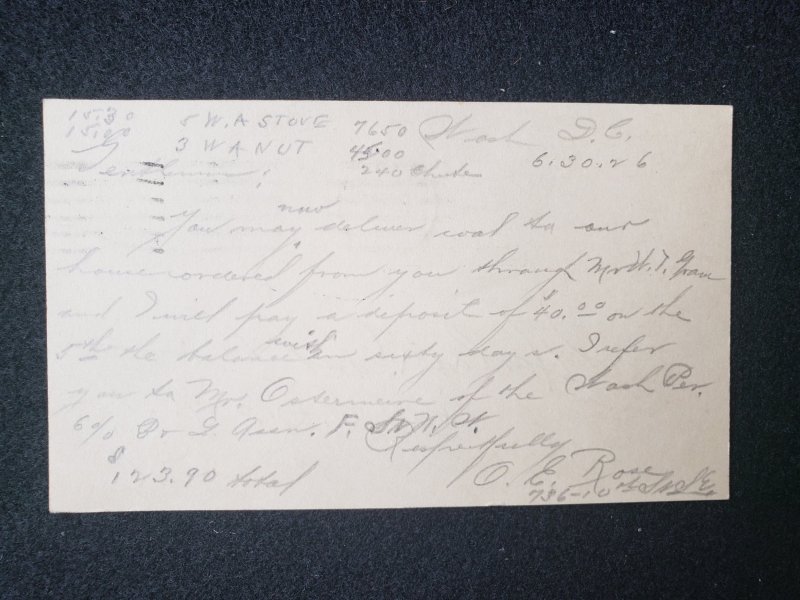 15.30 5 W.A STOVE 7650 Wash D.C.
15.00 3 W A NUT 4500 6.30.26
Gentlemen: 240 Chute
now
You may deliver coal to our
house ordered from you through Mr W. T.
and I will pay a deposit of $40.00 on the
5th the balance in sixty days. I refer
you to Mr. Ostermeire of the Wash Per.
6% Br L Assn. F. St N.W.
Respectfully
$123.90 total O. E. Rose
736-10th St S.E.